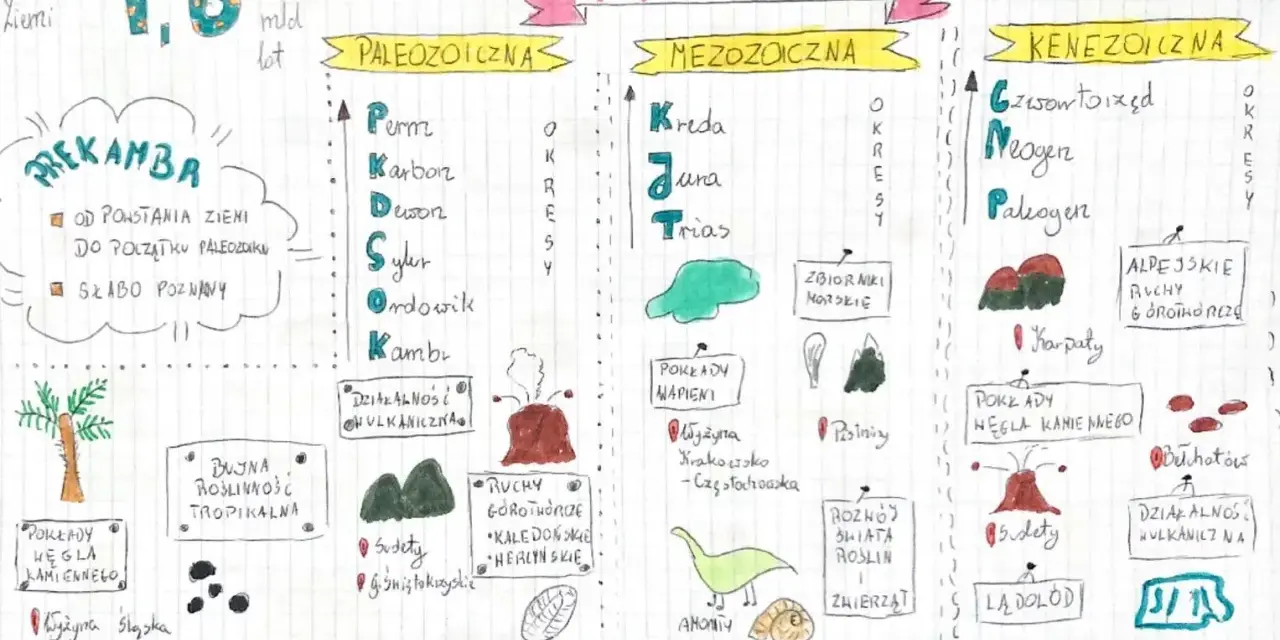 Ziemi
mld
lat
PREKAMBR
OD POWSTANIA ZIEMI
DO POCZĄTKU PALEOZOIKU
SŁABO POZNANY
POKŁADY
WĘGLA
KAMIENNEGO
Wyżyna Śląska
BUJNA
ROŚLINNOŚĆ
TROPIKALNA
PALEOZOICZNA
Perm
Karbon
Dewon
Sylur
Ordowik
Kambr
OKRESY
DZIAŁALNOŚĆ
WULKANICZNA
Sudety
G.Świętokrzyskie
RUCHY
GÓROTWÓRCZE
•KALEDOŃSKIE
•HERCYŃSKIE
MEZOZOICZNA
Kreda
Jura
Trias
OKRESY
ZBIORNIKI
MORSKIE
POKŁADY
WAPIENI
Wyżyna
Krakowsko
-Częstochowska
Pieniny
ROZWÓJ
ŚWIATA
ROŚLIN
I
ZWIERZĄT
AMONITY
KENEZOICZNA
Czwartorzęd
Neogen
Paleogen
OKRESY
ALPEJSKIE
RUCHY
GÓROTWÓRCZE
Karpaty
POKŁADY
WĘGLA KAMIENNEGO
Bełchatów
Sudety
DZIAŁALNOŚĆ
WULKANICZNA
LĄDOLÓD